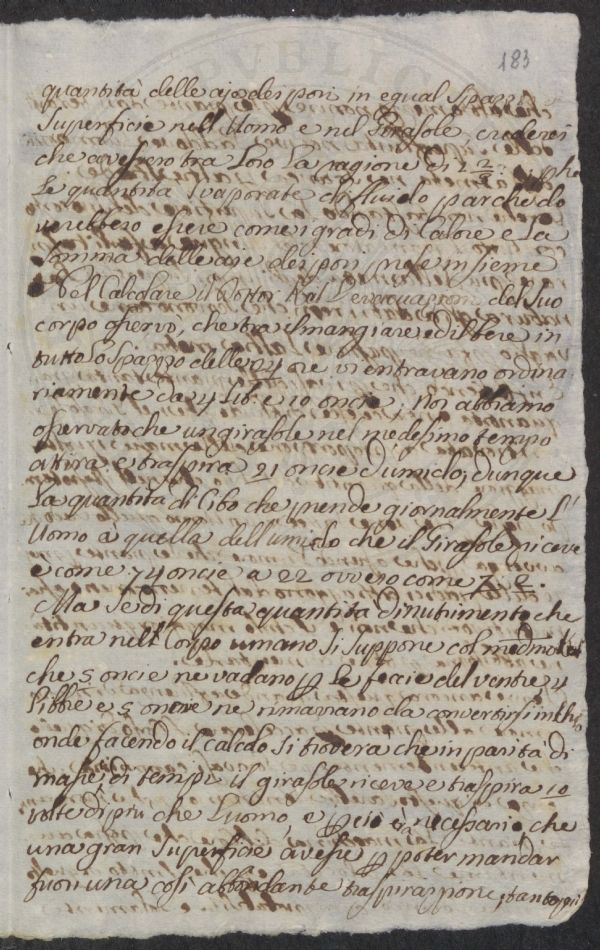 183
quantità delle aje dei pori in egual Spazzi di
Superficie nell Uomo e nel Girasole, crederei
che avessero tra Loro La ragione di
Le quantita Svaporate di fluido parche do
verebbero essere come i gradi di Calore e La
Somma delle aje dei pori prese insieme
Nel Calcolare il Dottor Keil L'evacuazione del Suo
corpo osservò, che tra il mangiare ed il bere in
tutto Lo Spazzo delle 24 ore vi entravano ordina
riamente da 4 lib: e 10 oncie; Noi abbiamo
osservato che un girasole nel medesimo tempo
attira e traspira 21 oncie d'umido, dunque
La quantità di Cibo che prende giornalmente L'
Uomo à quella dell'umido che il Girasole riceve
e come 74 oncie a 22 ovvero come 7. 2.
Ma Se di questa quantita di nutrimento che
entra nell Corpo umano Si Suppone col medmo
che 5 oncie ne vadano p Le fecie del ventre, 4
Libbre e 5 oncie ne rimarrano da convertirsi in
onde facendo il calcolo Si troverà che in parità di
masse, e di tempi il girasole riceve e traspira 10
volte di più che L'uomo, e p ciò era necessario, che
una gran Superficie avesse p poter mandar
fuori una così abbondante traspirazzione, tanto più